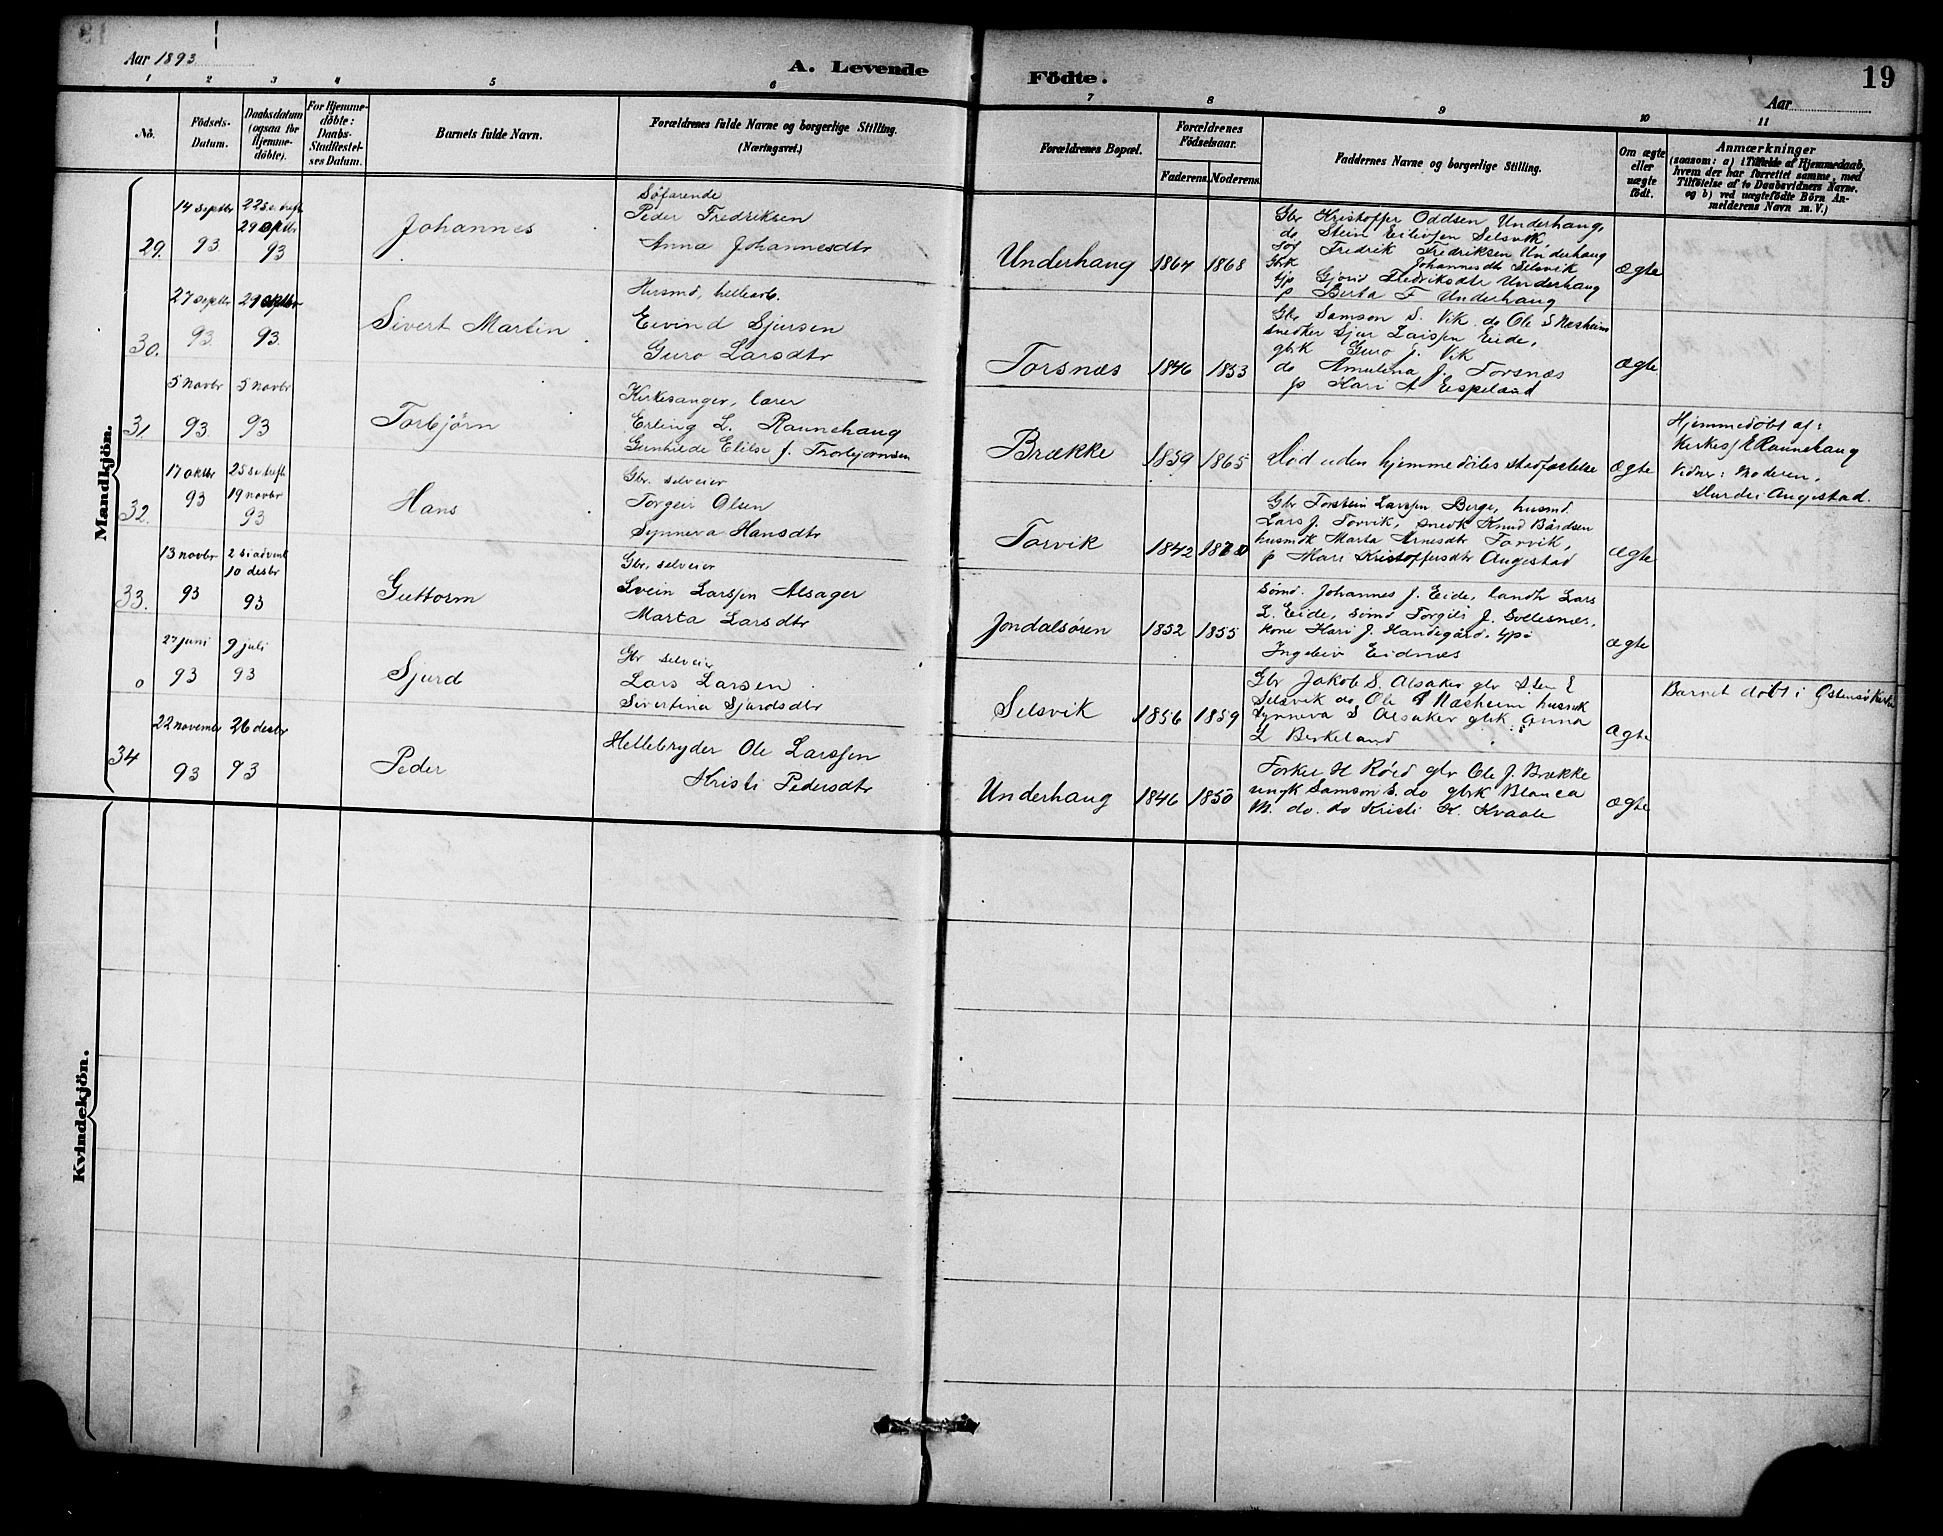 Aar 1893
A. Levende
Födte.
19
Aar
1 2 3 4 5 6 7 8 9 10 11
No.
Födsels-
Datum.
Daabsdatum
(ogsaa for
Hjemme-
döbte).
For Hjemme-
döbte:
Daabs-
Stadfæstel-
ses Datum.
Barnets fulde Navn.
Forældrenes fulde Navne og borgerlige Stilling.
(Næringsvei.)
Forældrenes Bopæl.
Forældrenes
Födselsaar.
Faderens.
Moderens.
Faddernes Navne og borgerlige Stilling.
Om ægte
eller
uægte
födt.
Anmærkninger
(saasom: a) i Tilfælde af Hjemmedaab,
hvem der har forrettet samme, med
Tilföielse af to Daabsvidners Navne.
og b) ved uægtefödte Börn An-
melderens Navn m. V.)
Mandkjön.
29.
14 septbr
93
22 s e. trefh
29 septbr
93
Johannes
Söfarende
Peder Fredriksen
Anna Johannesdtr
Underhaug
1864
1868
Gbr Kristoffer Oddsen Underhaug,
do Stein Eilivsen Selsvik
Söf Fredrik Fredriksen Underhaug
Gbrk Johannesdtr Selsvik
tjp Gjöri Fredriksdtr Underhaug
p Berta F Underhaug
Ægte
30.
27 septbr
93.
29 septbr
93.
Sivert Martin
Husmd, hellearb.
Eivind Sjursen
Guro Larsdtr
Torsnæs
1846
1853
Gbr Samson S. Vik do Ole S Næsheim
snedker Sjur Larssen Eide,
gbrk Guro J. Vik
do Amulena J. Torsnæs
p Kari A Espeland
Ægte
31
5 novbr
93
5 novbr
93
Torbjørn
Kirkesanger, lærer
Erling L. Raunehaug
Gunhilde Elise J. Thorbjørnsen
Brække
1859
1865
Död uden hjemmedöbtes stadfæstelse
Ægte
Hjemmedöbt af:
Kirkes/ E Raunehaug
Vidner: Moderen,
Durdei Augestad.
32.
17 oktbr
93
25 s e treft
19 novbr
93
Hans
Gbr. selveier
Torgeir Olsen
Synneva Hansdtr
Torvik
1842
1870
Gbr Torstein Larssen Berge, husmd.
Lars J. Torvik, snedk Knud Bårdsen
husmdk Marta Arnesdtr Torvik,
p Mari Kristoffersdtr Augestad
Ægte
33.
13 novbr
93
2 s i advent
10 desbr
93
Guttorm
Gbr. selveier
Svein Larssen Alsager
Marta Larsdtr
Jondalsören
1852
1855
Sömd. Johannes J. Eide, landh Lars
L. Eide, sömd Torgils J. Sollesnæs,
kone Kari J. Handegård, tpi
Ingebor Eidnæs
Ægte
0
27 juni
93
9 juli
93
Sjurd
Gbr selveier
Lars Larsen
Sivertina Sjurdsdtr
Selsvik
1856
1859
Gbr Jakob S. Alsaker gbr Sten E
Selsvik do Ole S Næsheim husmk
Synneva S Alsaker gbrk Anna
L Birkeland
Ægte
Barnet döbt i Östensö kirke
34
22 november
93
26 desbr
93
Peder
Hellebryder Ole Larssen
Kristi Pedersdtr
Underhaug
1846
1850
Torkel H Röed gbr Ole J. Brække
ungk Samson S. do gbrk Blanca
M. do. do Kristi K. Kvaale
Ægte
Kvindekjön.